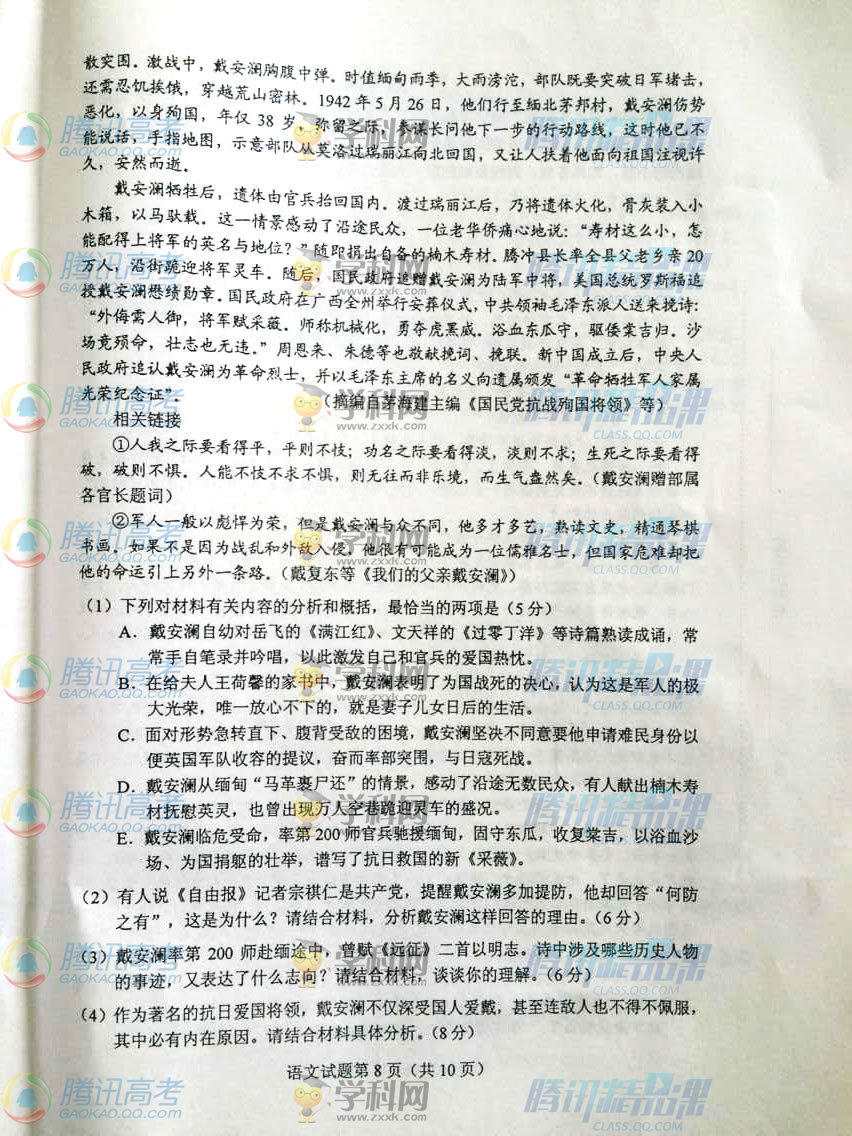 散突围。激战中，戴安澜胸腹中弹。时值缅甸雨季，大雨滂沱，部队既要突破日军堵击，
还需忍饥挨饿，穿越荒山密林。1942年5月26日，他们行至缅北茅邦村，戴安澜伤势
恶化，以身殉国，年仅38岁。弥留之际，参谋长问他下一步的行动路线，这时他已不
能说话，手指地图，示意部队从莫洛过瑞丽江向北回国，又让人扶着他面向祖国注视许
久，安然而逝。
戴安澜牺牲后，遗体由官兵抬回国内。渡过瑞丽江后，乃将遗体火化，骨灰装入小
木箱，以马驮载。这一情景感动了沿途民众，一位老华侨痛心地说：“寿材这么小，怎
能配得上将军的英名与地位？”随即捐出自备的楠木寿材。腾冲县长率全县父老乡亲20
万人，沿街跪迎将军灵车。随后，国民政府追赠戴安澜为陆军中将，美国总统罗斯福追
授戴安澜懋绩勋章。国民政府在广西全州举行安葬仪式，中共领袖毛泽东派人送来挽诗：
“外侮需人御，将军赋采薇。师称机械化，勇夺虎罴威。浴血东瓜守，驱倭棠吉归。沙
场竟殒命，壮志也无违。”周恩来、朱德等也敬献挽词、挽联。新中国成立后，中央人
民政府追认戴安澜为革命烈士，并以毛泽东主席的名义向遗属颁发“革命牺牲军人家属
光荣纪念证”
（摘编自茅海建主编《国民党抗战殉国将领》等）
相关链接
①人我之际要看得平，平则不忮；功名之际要看得淡，淡则不求；生死之际要看得
破，破则不惧。人能不忮不求不惧，则无往而非乐境，而生气盎然矣。（戴安澜赠部属
各官长题词）
②军人一般以彪悍为荣，但是戴安澜与众不同，他多才多艺，熟读文史，精通琴棋
书画。如果不是因为战乱和外敌入侵，他很有可能成为一位儒雅名士，但国家危难却把
他的命运引上另外一条路。（戴复东等《我们的父亲戴安澜》）
（1）下列对材料有关内容的分析和概括，最恰当的两项是（5分）
A．戴安澜自幼对岳飞的《满江红》、文天祥的《过零丁洋》等诗篇熟读成诵，常
常手自笔录并吟唱，以此激发自己和官兵的爱国热忱。
B．在给夫人王荷馨的家书中，戴安澜表明了为国战死的决心，认为这是军人的极
大光荣，唯一放心不下的，就是妻子儿女日后的生活。
C．面对形势急转直下、腹背受敌的困境，戴安澜坚决不同意要他申请难民身份以
便英国军队收容的提议，奋而率部突围，与日寇死战。
D．戴安澜从缅甸“马革裹尸还”的情景，感动了沿途无数民众，有人献出楠木寿
材抚慰英灵，也曾出现万人空巷跪迎灵车的盛况。
E．戴安澜临危受命，率第200师官兵驰援缅甸，固守东瓜，收复棠吉，以浴血沙
场、为国捐躯的壮举，谱写了抗日救国的新《采薇》。
（2）有人说《自由报》记者宗祺仁是共产党，提醒戴安澜多加提防，他却回答“何防
之有”，这是为什么？请结合材料，分析戴安澜这样回答的理由。（6分）
（3）戴安澜率第200师赴缅途中，曾赋《远征》二首以明志。诗中涉及哪些历史人物
的事迹，又表达了什么志向？请结合材料，谈谈你的理解。（6分）
（4）作为著名的抗日爱国将领，戴安澜不仅深受国人爱戴，甚至连敌人也不得不佩服，
其中必有内在原因。请结合材料具体分析。（8分）
语文试题第8页（共10页）